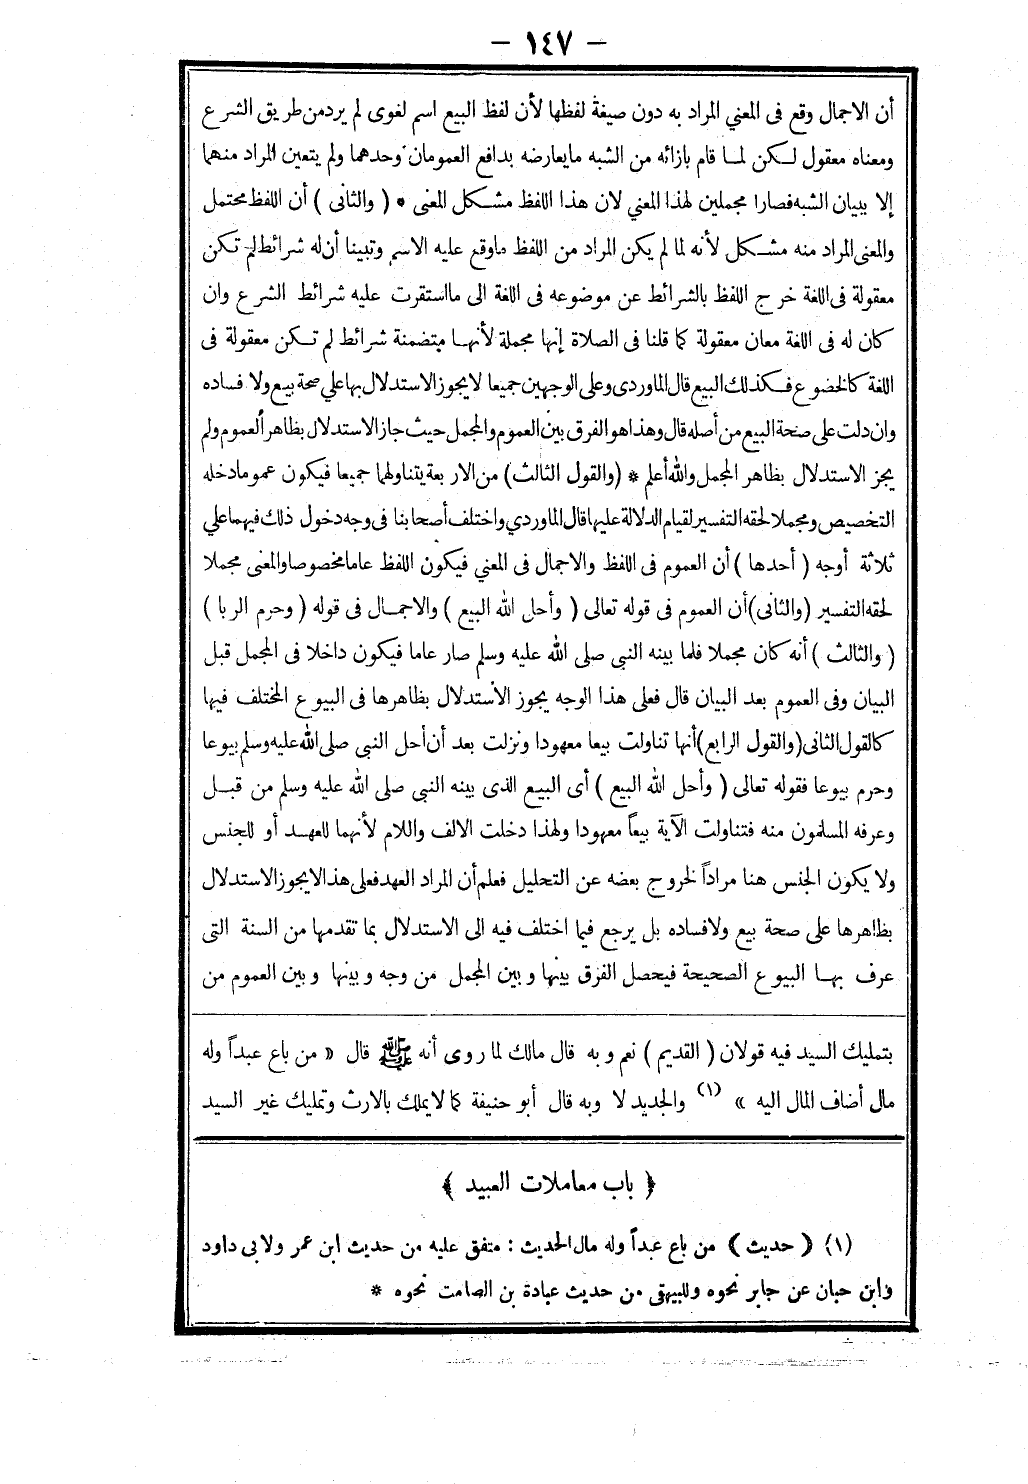 — ١٤٧ —
أن الاجمال وقع فى المعني المراد به دون صيغة لفظها لأن لفظ البيع اسم لغوى لم يرد من طريق الشرع
ومعناه معقول لكن لما قام بازائه من الشبه مايعارضه بدافع العمومان وحدهما ولم يتعين المراد منهما
إلا ببيان الشبه فصارا مجملين لهذا المعني لان هذا اللفظ مشكل المعنى * ( والثانى ) أن اللفظ محتمل
والمعنى المراد منه مشكل لأنه لما لم يكن المراد من اللفظ ماوقع عليه الاسم وتبينا أن له شرائط لم تكن
معقولة فى اللغة خرج اللفظ بالشرائط عن موضوعه فى اللغة الى مااستقرت عليه شرائط الشرع وان
كان له فى اللغة معان معقولة كما قلنا فى الصلاة إنها مجملة لأنها متضمنة شرائط لم تكن معقولة فى
اللغة كالخضوع فكذلك البيع قال الماوردى وعلى الوجهين جميعا لا يجوز الاستدلال بها علي صحة بيع ولا فساده
وان دلت على صحة البيع من أصله قال وهذا هو الفرق بين العموم والمجمل حيث جاز الاستدلال بظاهر العموم ولم
يجز الاستدلال بظاهر المجمل والله أعلم * (والقول الثالث) من الاربعة يتناولهما جميعا فيكون عموما دخله
التخصيص ومجملا لحقه التفسير لقيام الدلالة عليها قال الماوردي واختلف أصحابنا فى وجه دخول ذلك فيهما علي
ثلاثة أوجه ( أحدها ) أن العموم فى اللفظ والاجمال فى المعني فيكون اللفظ عاما مخصوصا والمعنى مجملا
لحقه التفسير (والثانى) أن العموم فى قوله تعالى ( وأحل الله البيع ) والاجمال فى قوله ( وحرم الربا )
( والثالث ) أنه كان مجملا فلما بينه النبى صلى الله عليه وسلم صار عاما فيكون داخلا فى المجمل قبل
البيان وفى العموم بعد البيان قال فعلى هذا الوجه يجوز الأستدلال بظاهرها فى البيوع المختلف فيها
كالقول الثانى (والقول الرابع) أنها تناولت بيعا معهودا ونزلت بعد أن أحل النبى صلى الله عليه وسلم بيوعا
وحرم بيوعا فقوله تعالى ( وأحل الله البيع ) أى البيع الذى بينه النبى صلى الله عليه وسلم من قبل
وعرفه المسلمون منه فتناولت الآية بيعاً معهودا ولهذا دخلت الالف واللام لأنهما للعهد أو للجنس
ولا يكون الجنس هنا مراداً لخروج بعضه عن التحليل فعلم أن المراد العهد فعلى هذا لا يجوز الاستدلال
بظاهرها على صحة بيع ولافساده بل يرجع فيما اختلف فيه الى الاستدلال بما تقدمها من السنة التى
عرف بها البيوع الصحيحة فيحصل الفرق بينها وبين المجمل من وجه وبينها وبين العموم من
بتمليك السيد فيه قولان ( القديم ) نعم وبه قال مالك لما روى أنه ﷺ قال « من باع عبداً وله
مال أضاف المال اليه » (١) والجديد لا وبه قال أبو حنيفة كما لايملك بالارث وتمليك غير السيد
﴿ باب معاملات العبيد ﴾
(١) ﴿ حديث ﴾ من باع عبداً وله مال الحديث : متفق عليه من حديث ابن عمر ولابى داود
وابن حبان عن جابر نحوه وللبيهقى من حديث عبادة بن الصامت نحوه *